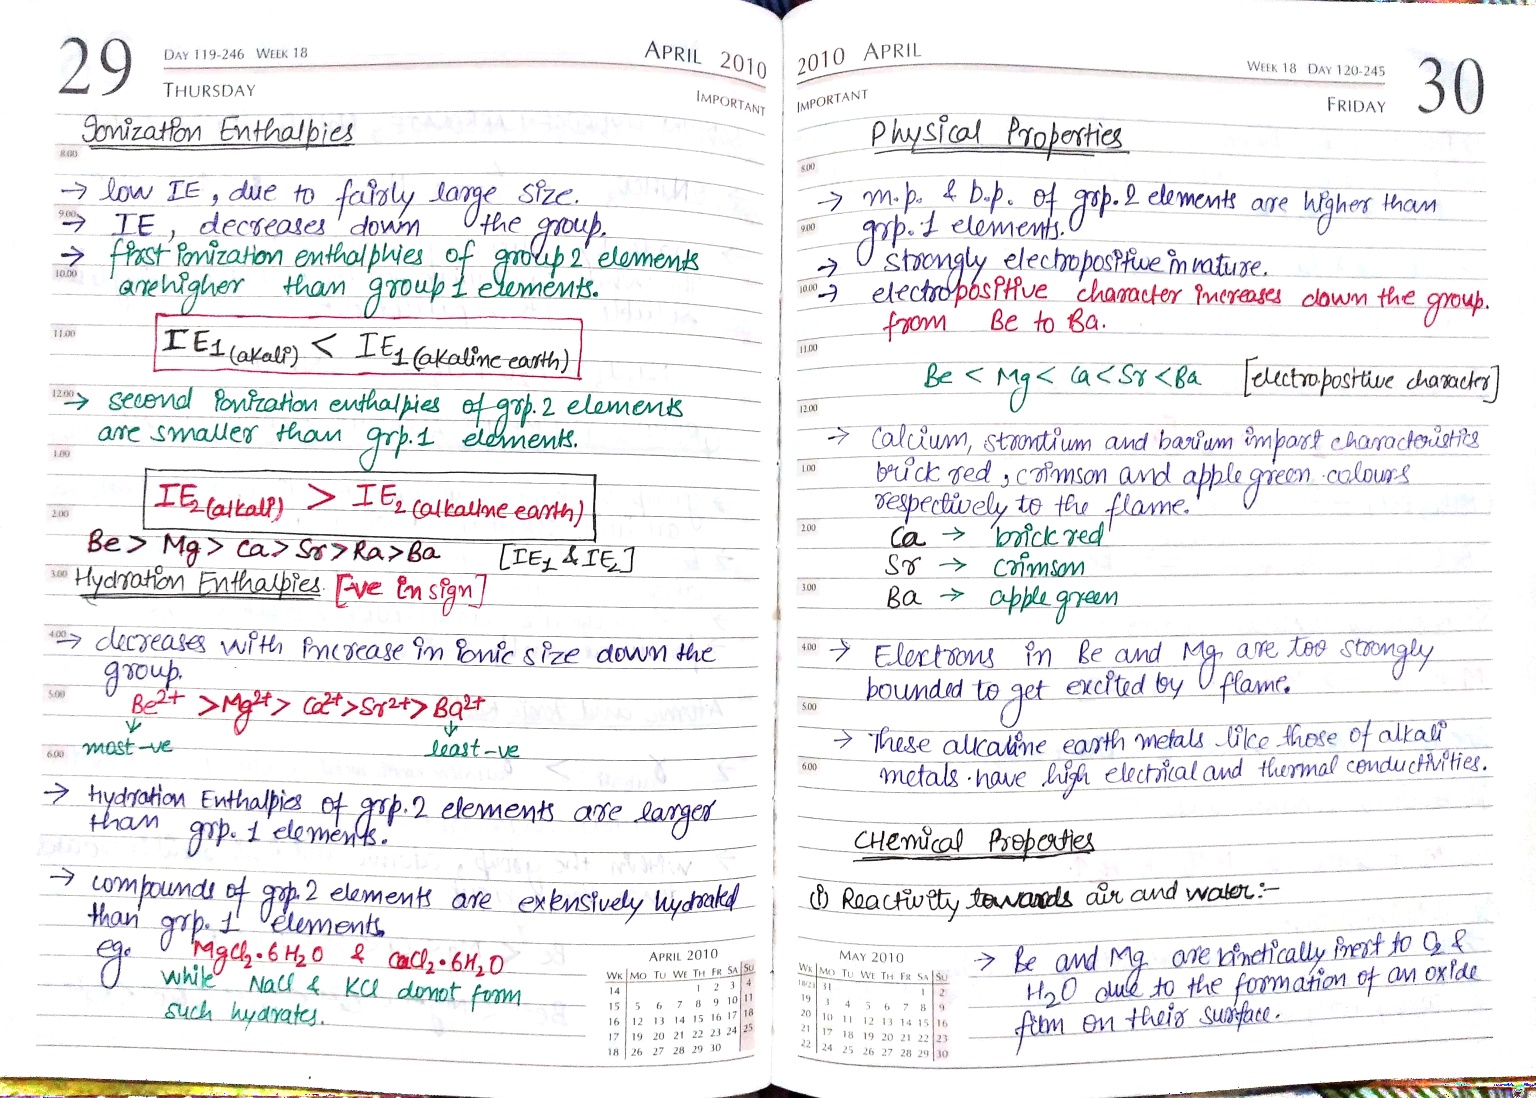 29
DAY 119-246 WEEK 18
THURSDAY
APRIL 2010
IMPORTANT
Ionization Enthalpies
8.00
→ low IE, due to fairly large size.
9.00 → IE, decreases down the group.
→ first ionization enthalphies of group 2 elements
10.00 are higher than group 1 elements.
11.00
IE₁ (akali) < IE₁ (akaline earth)
12.00 → second ionization enthalpies of grp. 2 elements
are smaller than grp. 1 elements.
1.00
IE₂ (alkali) > IE₂ (alkaline earth)
2.00
Be > Mg > Ca > Sr > Ra > Ba [IE₁ & IE₂]
3.00 Hydration Enthalpies [-ve in sign]
4.00 → decreases with increase in ionic size down the
group.
5.00
Be²⁺ > Mg²⁺ > Ca²⁺ > Sr²⁺ > Ba²⁺
↓ ↓
6.00 most -ve least -ve
→ Hydration Enthalpies of grp. 2 elements are larger
than grp. 1 elements.
→ compounds of grp. 2 elements are extensively hydrated
than grp. 1 elements
eg. MgCl₂·6H₂O & CaCl₂·6H₂O
while NaCl & KCl donot form
such hydrates.
APRIL 2010
WK MO TU WE TH FR SA SU
14 1 2 3 4
15 5 6 7 8 9 10 11
16 12 13 14 15 16 17 18
17 19 20 21 22 23 24 25
18 26 27 28 29 30
2010 APRIL
IMPORTANT
WEEK 18 DAY 120-245
FRIDAY
30
Physical Properties
8.00
→ m.p. & b.p. of grp. 2 elements are higher than
9.00 grp. 1 elements.
→ strongly electropositive in nature.
10.00 → electropositive character increases down the group.
from Be to Ba.
11.00
Be < Mg < Ca < Sr < Ba [electropositive character]
12.00
→ Calcium, strontium and barium impart characteristics
1.00 brick red, crimson and apple green colours
respectively to the flame.
2.00 Ca → brick red
Sr → crimson
3.00 Ba → apple green
4.00 → Electrons in Be and Mg are too strongly
bounded to get excited by flame.
5.00
→ These alkaline earth metals like those of alkali
6.00 metals have high electrical and thermal conductivities.
CHemical Properties
(i) Reactivity towards air and water:-
→ Be and Mg are kinetically inert to O₂ &
H₂O due to the formation of an oxide
film on their surface.
MAY 2010
WK MO TU WE TH FR SA SU
18/23 31 1 2
19 3 4 5 6 7 8 9
20 10 11 12 13 14 15 16
21 17 18 19 20 21 22 23
22 24 25 26 27 28 29 30